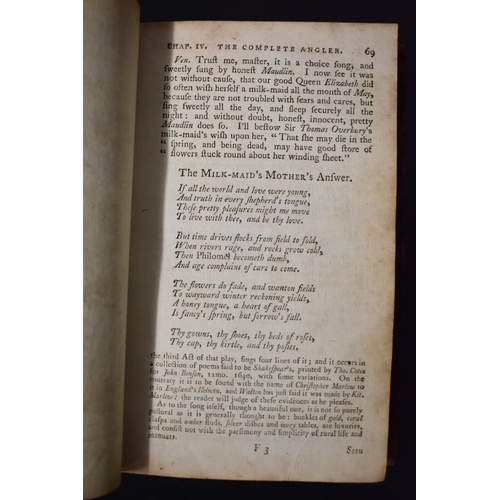 CHAP. IV. THE COMPLETE ANGLER. 69
Ven. Trust me, maſter, it is a choice ſong, and
ſweetly ſung by honeſt Maudlin. I now ſee it was
not without cauſe, that our good Queen Elizabeth did
ſo often wiſh herſelf a milk-maid all the month of May,
becauſe they are not troubled with fears and cares, but
ſing ſweetly all the day, and ſleep ſecurely all the
night: and without doubt, honeſt, innocent, pretty
Maudlin does ſo. I'll beſtow Sir Thomas Overbury's
milk-maid's wiſh upon her, "That ſhe may die in the
"ſpring, and being dead, may have good ſtore of
"flowers ſtuck round about her winding ſheet."
The MILK-MAID'S MOTHER'S Anſwer.
If all the world and love were young,
And truth in every ſhepherd's tongue,
Theſe pretty pleaſures might me move
To live with thee, and be thy love.
But time drives flocks from field to fold,
When rivers rage, and rocks grow cold,
Then Philomel becometh dumb,
And age complains of cares to come.
The flowers do fade, and wanton fields
To wayward winter reckoning yields,
A honey tongue, a heart of gall,
Is fancy's ſpring, but ſorrow's fall.
Thy gowns, thy ſhoes, thy beds of roſes,
Thy cap, thy kirtle, and thy poſies,
the third Act of that play, ſings four lines of it; and it occurs in
a collection of poems ſaid to be Shakeſpear's, printed by Tho. Cotes
for John Benſon, 12mo. 1640, with ſome variations. On the
contrary it is to be found with the name of Chriſtopher Marlow to
it in England's Helicon, and Walton has juſt ſaid it was made by Kit.
Marlow: the reader will judge of theſe evidences as he pleaſes.
As to the ſong itſelf, though a beautiful one, it is not ſo purely
paſtoral as it is generally thought to be: buckles of gold, coral
claſps and amber ſtuds, ſilver diſhes and ivory tables, are luxuries,
and conſiſt not with the parſimony and ſimplicity of rural life and
manners.
F 3 Soon